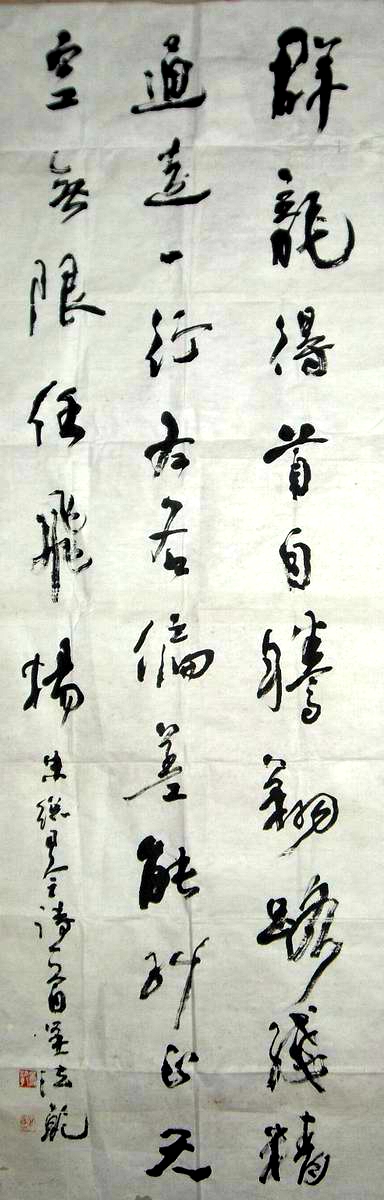 群龍得首自騰翔路綫精
通走一行左右偏差能糾正天
空無限任飛揚
朱總司令詩一首